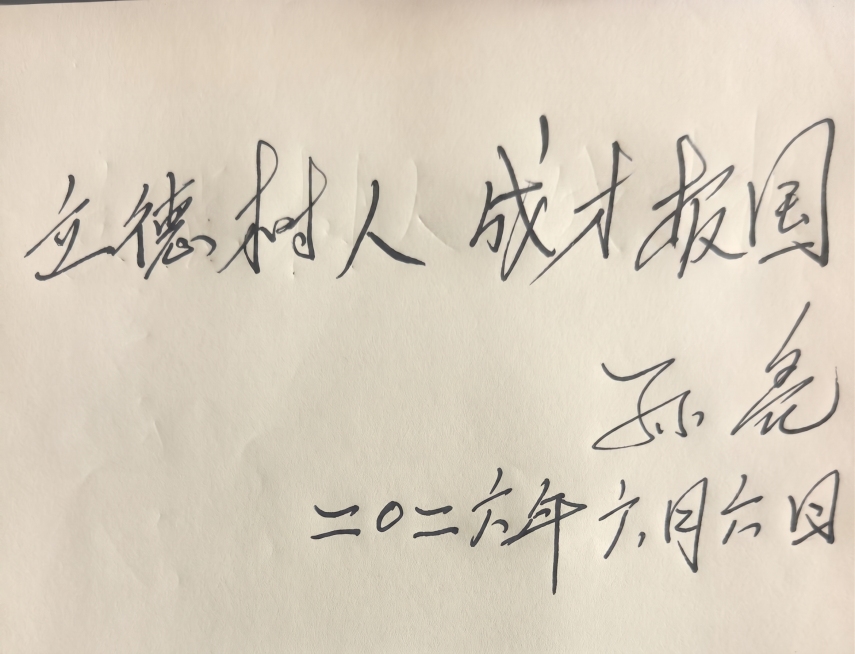 立德树人 成才报国
孙亮
二〇二六年六月六日